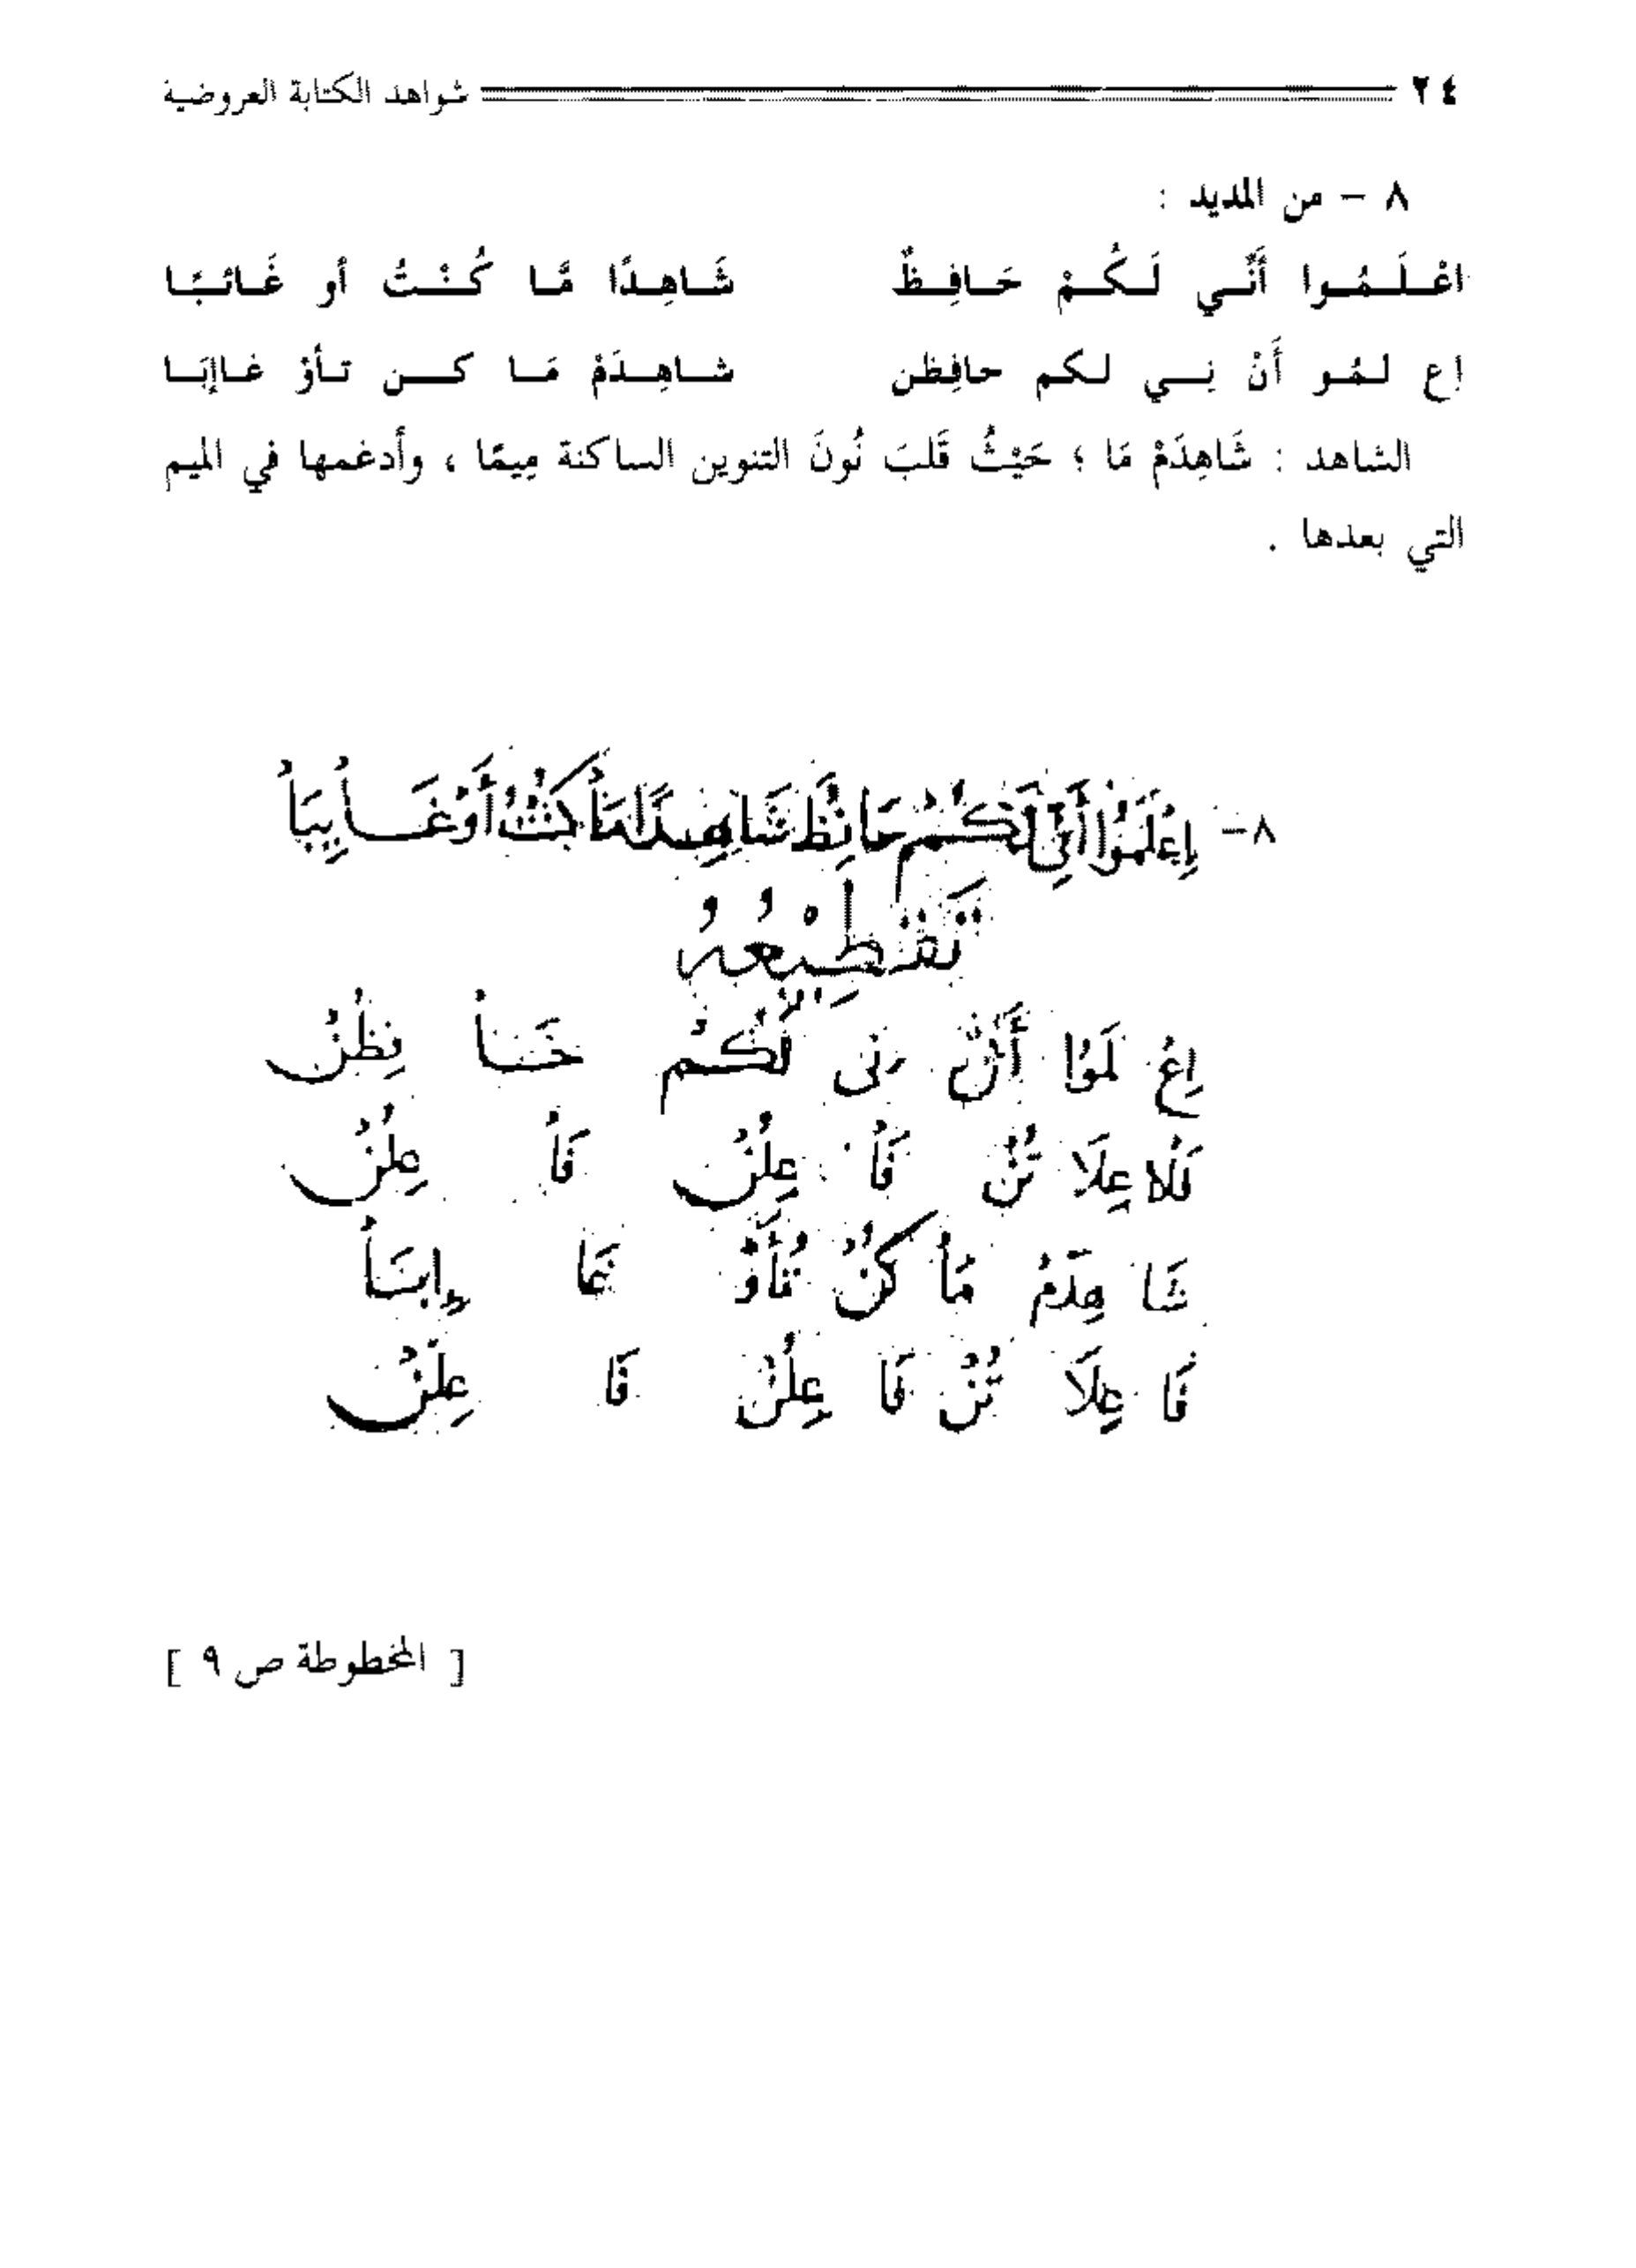 ٢٤ شواهد الكتابة العروضية
٨ – من المديد :
اعْلَمُوا أنَّي لَكُمْ حَافِظٌ شَاهِدًا مَّا كُنْتُ أو غَائبًا
اِع لمُو أَنْ نِي لكم حافِظن شاهِدَمْ مَا كن تأوْ غاإبَا
الشاهد : شَاهِدَمْ مَا ؛ حَيْثُ قَلبَ نُونَ التنوين الساكنة مِيمًا ، وأدغمها في الميم
التي بعدها .
٨– اِعْلَمُوْا أَنِّى لَكُمْ حَافِظٌ شَاهِدًا مَاْ كُنْتُ أَوْ غَاْيِبَاْ
تَقْطِيْعُهُ
اِعْ لَمُوْا أَنْ نِى لَكُمْ حَاْ فِظُنْ
عِلَا تُنْ فَاْ عِلُنْ فَاْ عِلُنْ
شَا هِدَمْ مَاْ كُنْ تُأَوْ
فَا عِلَا تُنْ فَا عِلُنْ فَا عِلُنْ
[ المخطوطة ص ٩ ]